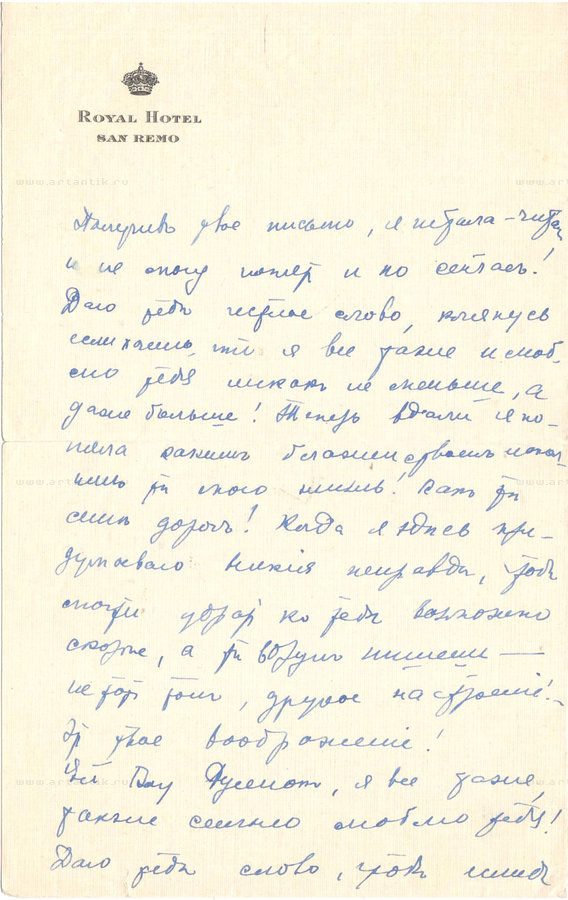 ROYAL HOTEL
SAN REMO
www.artantik.ru
Получивъ твое письмо, я читала-читала
и не могу понять и по сейчасъ!
Даю тебѣ честное слово, клянусь
что я все также и люб-
лю тебя никакъ не меньше, а
даже больше! Теперь вдали я по-
няла какимъ блаженствомъ напол-
нилъ ты мою жизнь! Какъ ты
мнѣ дорогъ! Когда я здѣсь при-
думываю всякія неправды, чтобъ
смочь удрать къ тебѣ возможно
скорѣе, а ты вдругъ пишешь —
не тотъ тонъ, другое настроеніе!
Это твое воображеніе!
Богу я все также,
также сильно люблю тебя!
Даю тебѣ слово, чтобъ